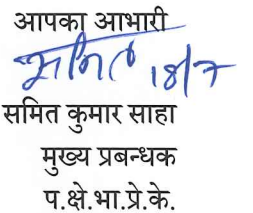 आपका आभारी
समित 18/7
समित कुमार साहा
मुख्य प्रबन्धक
प.क्षे.भा.प्रे.के.